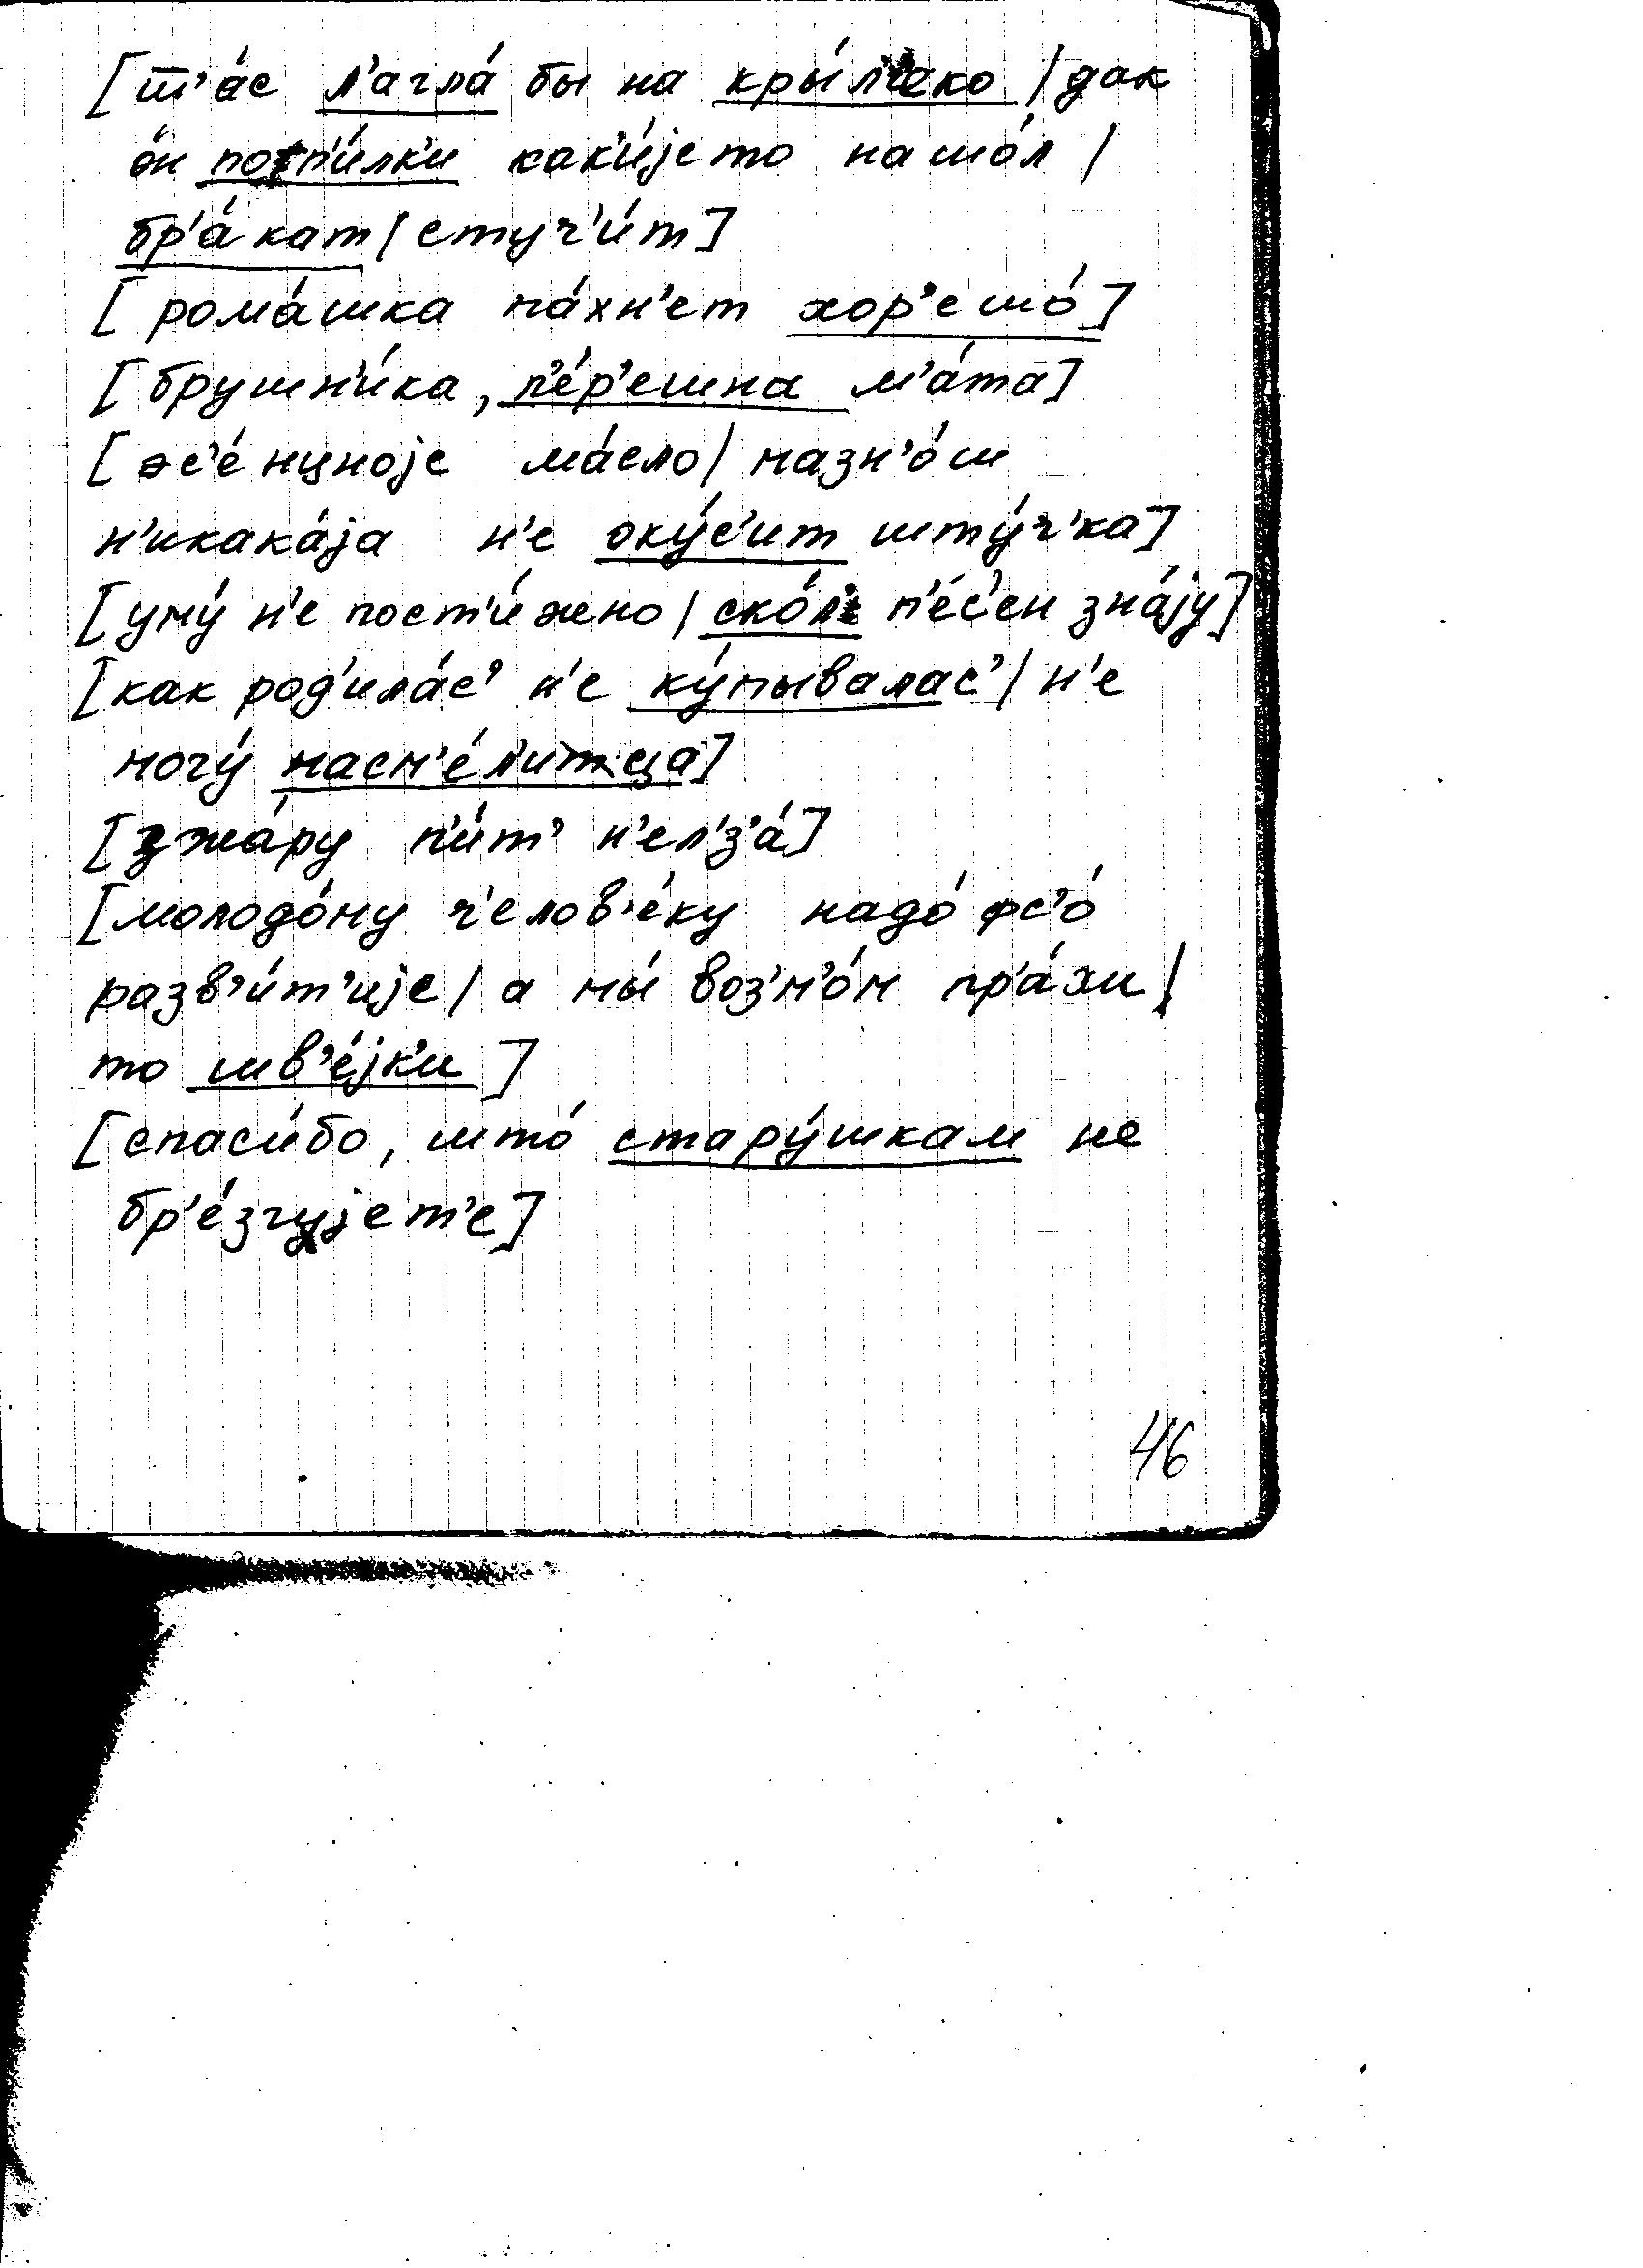 [т’а́с л’агла́ бы на кры́л’ако / дак
о́н потп’и́лк’и как’и́јето нашо́л /
бр’а́кат / стуч’и́т]
[рома́шка па́хн’ет хор’ешо́]
[брушн’и́ка, п’е́р’ешна м’а́та]
ма́сло / мазн’о́ш
н’икака́ја н’е оку́с’ит шту́ч’ка]
[уму́ н’е пост’и́жено / ско́л’ п’е́с’ен зна́ју]
[как род’ила́с’ н’е ку́пывалас’ / н’е
могу́ насм’е́л’итца]
[зжа́ру п’и́т’ н’ел’з’а́]
[молодо́му ч’елов’е́ку надо́ фс’о́
разв’и́т’ије / а мы́ воз’м’о́м пр’а́хи /
то шв’е́јк’и]
[спаси́бо, што́ стару́шкам не
бр’е́згујет’е]
46